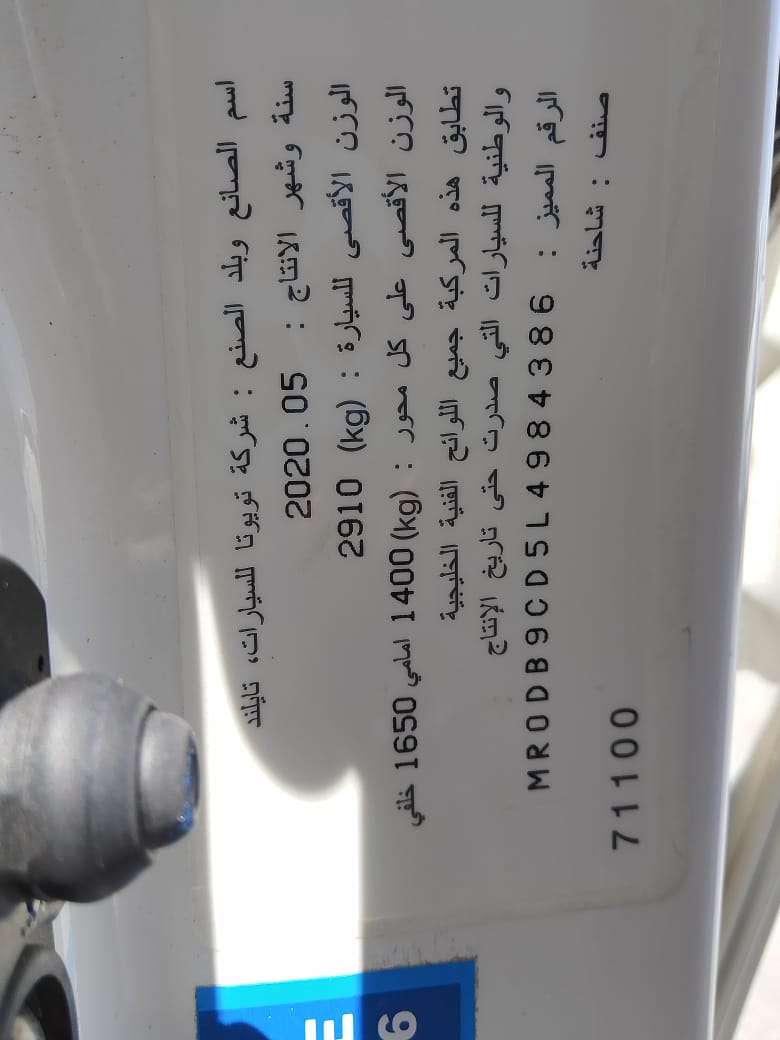 اسم الصانع وبلد الصنع : شركة تويوتا للسيارات، تايلند
سنة وشهر الانتاج : 2020.05
الوزن الأقصى للسيارة : (kg) 2910
الوزن الأقصى على كل محور : (kg) 1400 امامي 1650 خلفي
تطابق هذه المركبة جميع اللوائح الفنية الخليجية
والوطنية للسيارات التي صدرت حتى تاريخ الإنتاج
الرقم المميز : MR0DB9CD5L4984386
صنف : شاحنة
71100
E
6